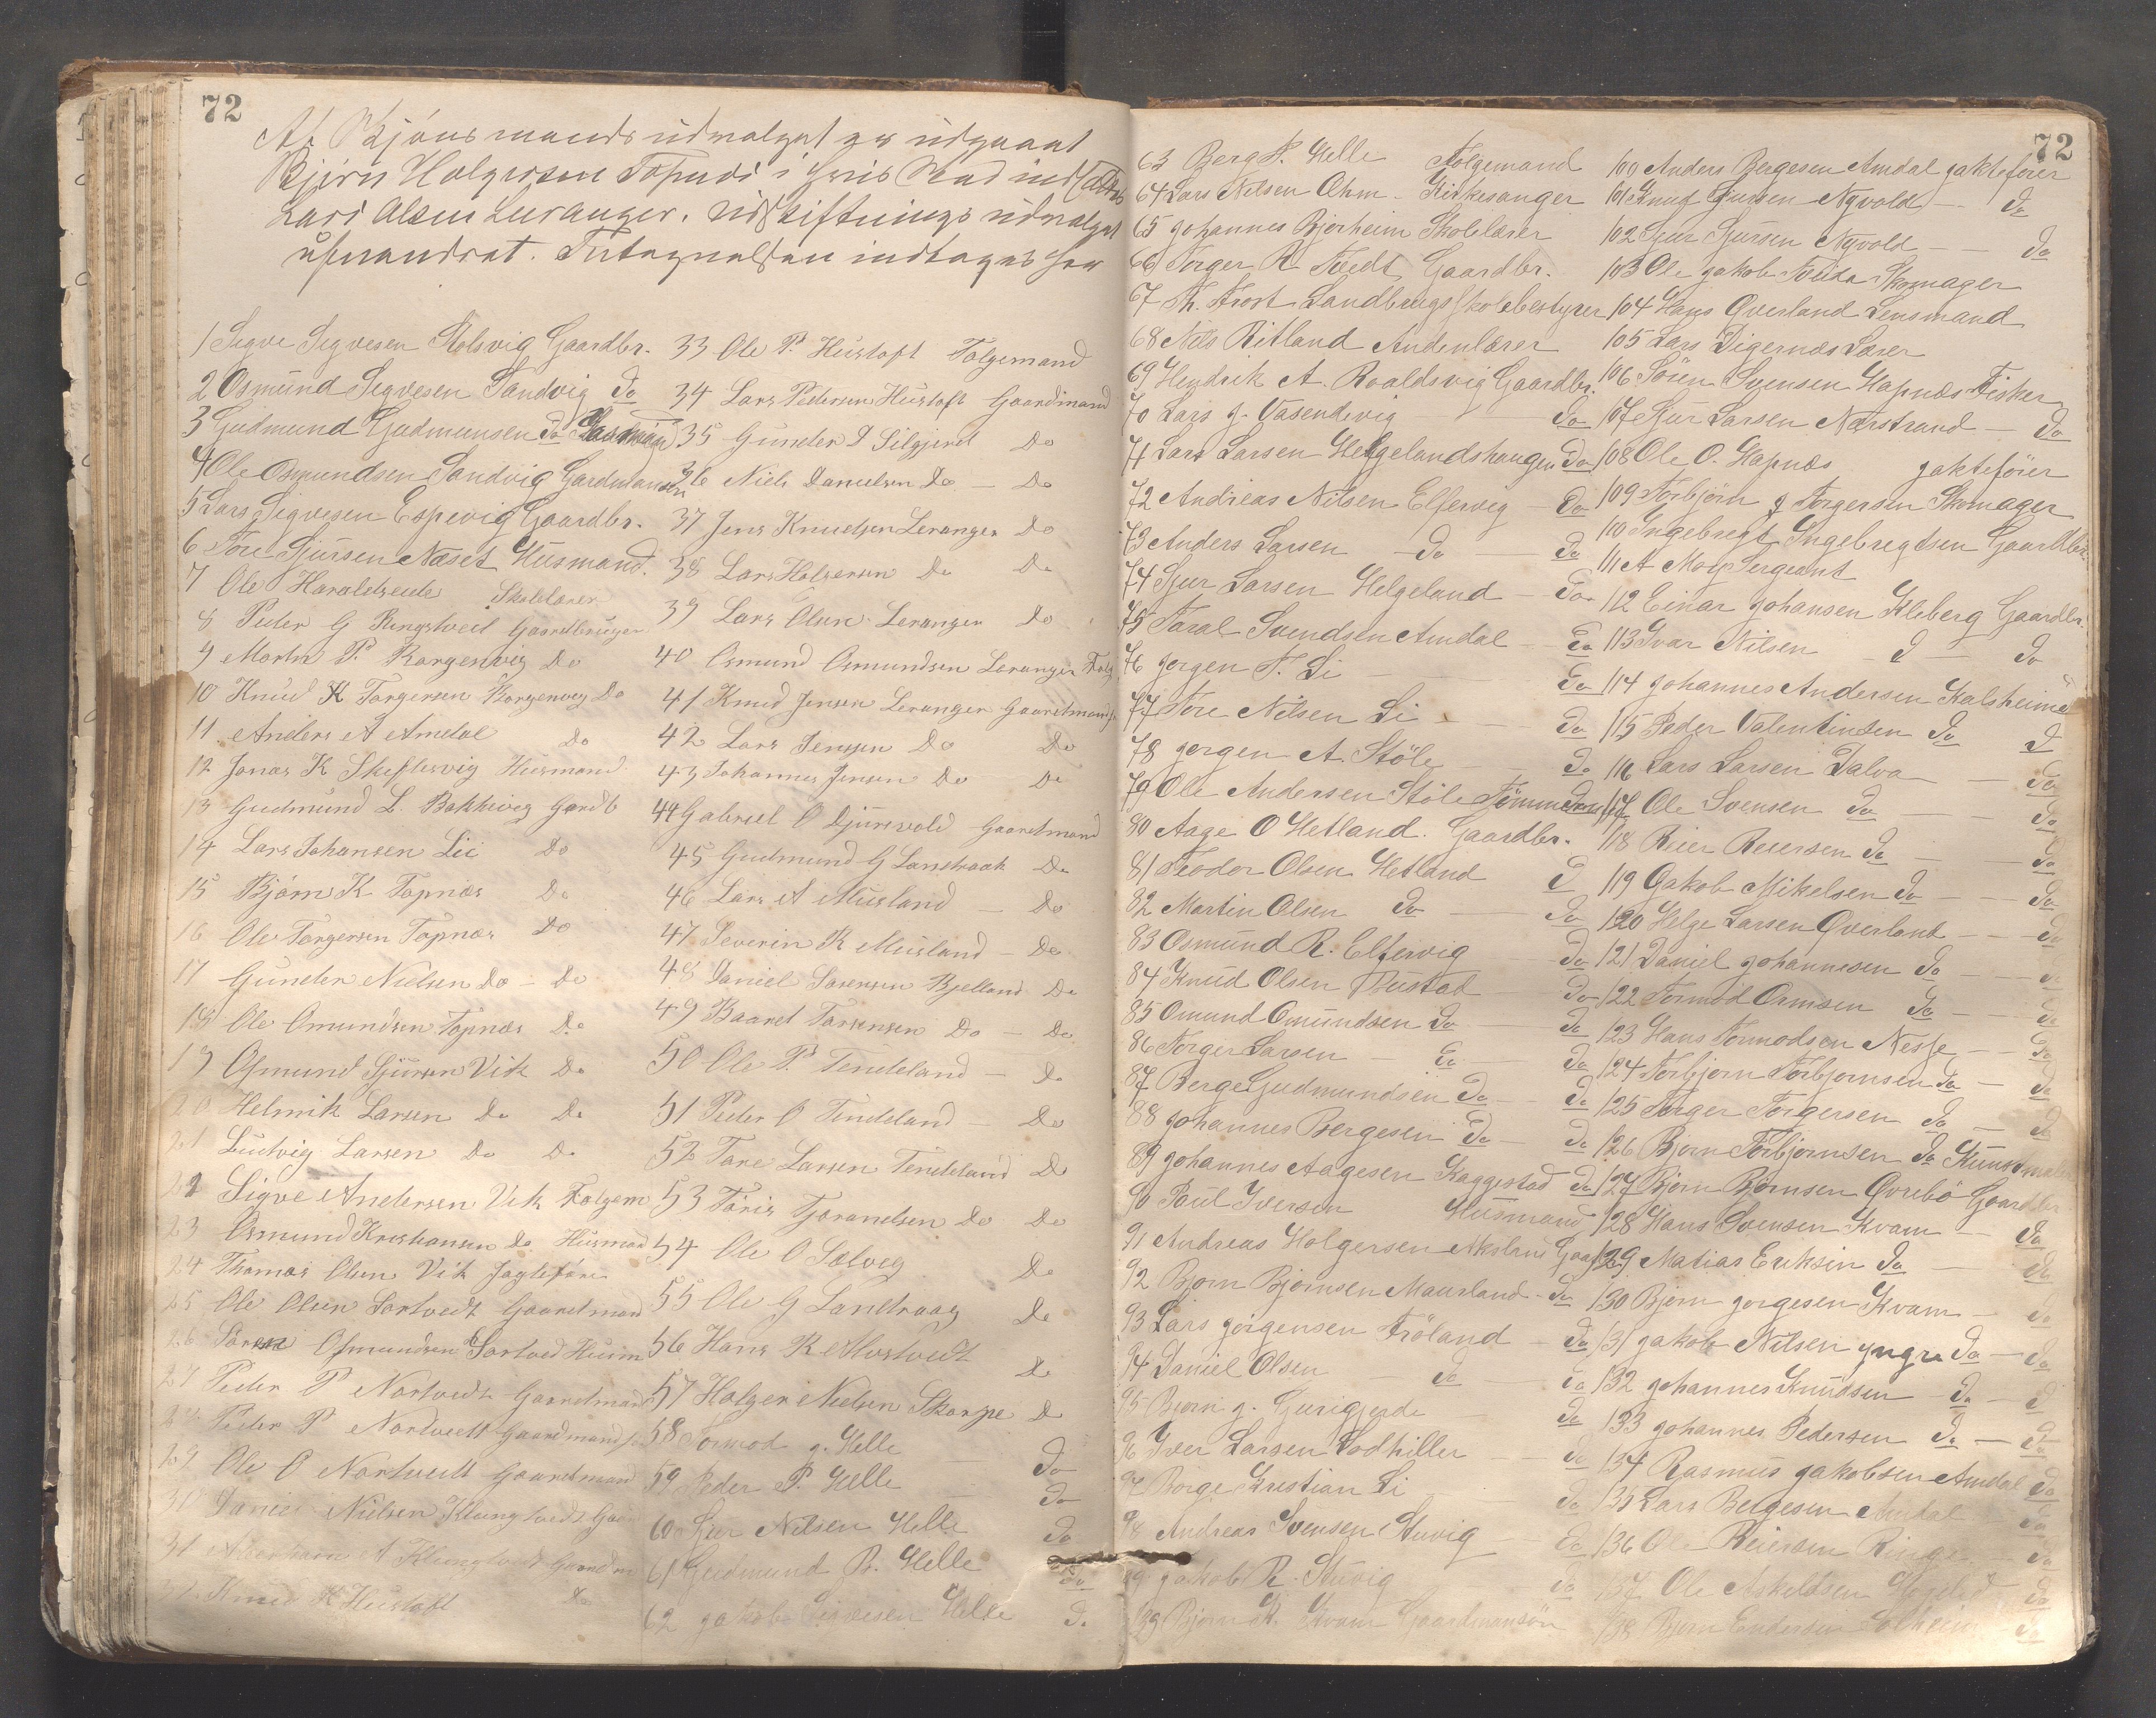 72
Af Skjöns mands udvalget er udgaaet
Bjørn Holgersen Tøpnes i Hans Sted indsættes
Lars Olsen Leranger. Udskiftnings udvalget
uforandret. Fortegnelsen indtages her
1 Sigve Sigvesen Kolsvig Gaardbr.
2 Osmund Sigvesen Sandvig Do
3 Gudmund Gudmunsen do
4 Ole Osmundsen Sandvig
5 Lars Sigvesen Espevig Gaardbr.
6 Tore Sjursen Næset Husmand.
7 Ole Haraldseide Skolelærer
8 Peder G Gaardbruger
9 Martin P. Borgenvig Do
10 Knud K Torgersen Borgenvig Do
11 Anders A Amdal Do
12 Jonas K Skeflesvig Husmand
13 Gudmund L. Bakkevig Gardb
14 Lars Johansen Lie Do
15 Bjørn K Topnes Do
16 Ole Torgersen Topnes Do
17 Gunder Nielsen Do - Do
18 Ole Omundsen Topnes Do
19 Osmund Sjursen Vik Do
20 Helmik Larsen Do Do
21 Ludvig Larsen Do Do
22 Sigve Andersen Vik Folgem
23 Osmund Kristiansen Do Husmand
24 Thomas Olsen Vik Jagtefører
25 Ole Olsen Sortvedt Gaardmand
26 Osmundsen Sortved Husm
27 Peder P Nortvedt Gaardmand
28 Peder P Nordvedt Gaardmands
29 Ole O Nortvedt Gaardmand
30 Daniel Nielsen Klungtvedt Gaar
31 A Klungtvedt Gaardm
32 Knud K Hustoft Do
33 Ole P. Hustoft Folgemand
34 Lars Pedersen Hustoft Gaardmand
35 Gunder Do
36 Niels Danielsen Do - Do
37 Jens Knudsen Leranger Do
38 Lars Holgersen Do Do
39 Lars Olsen Leranger Do
40 Osmund Osmundsen Leranger Folg
41 Knud Jensen Leranger Gaardmand
42 Lars Jensen Do Do
43 Johannes Jensen Do Do
44 Gabriel O Djursvold Gaardmand
45 Gudmund G Landraak Do
46 Lars A Musland - Do
47 Severin K Musland - Do
48 Daniel Sørensen Bjelland Do
49 Baard Do - Do
50 Ole P. Tendeland - Do
51 Peder O Tendeland - Do
52 Tore Larsen Tendeland Do
53 Tjørandsen Do Do
54 Ole O Solveg Do
55 Ole G Landraag Do
56 Hans R Do
57 Holger Nielsen Skorpe Do
58 Tormod J. Helle Do
59 Peder P. Helle Do
60 Sjur Nilsen Helle Do
61 Gudmund B. Helle Do
62 Jakob Sigvesen Helle Do
72
63 Berg P. Helle Folgemand
64 Lars Nilsen Ohm - Kirkesanger
65 Johannes Bjørheim Skolelærer
66 Torger R Tvedt Gaardbr.
67 Th. Frost Landbrugsskolebestyrer
68 Nils Ritland Andenlærer
69 Hendrik A. Roaldsvig Gaardbr.
70 Lars J. Vasendvig Do
71 Lars Larsen Helgelandshaugen Do
72 Andreas Nilsen Elfervig - Do
73 Anders Larsen Do Do
74 Sjur Larsen Helgeland - Do
75 Taral Svendsen Amdal Do
76 Jørgen T. Li Do
77 Tore Nilsen Li Do
78 Jørgen A. Støle Do
79 Ole Andersen Støle
80 Aage O Hetland. Gaardbr.
81 Teodor Olsen Hetland D
82 Martin Olsen Do Do
83 Osmund R. Elfervig Do
84 Knud Olsen Rustad Do
85 Omund Omundsen Do Do
86 Torger Larsen - Do Do
87 Berge Gudmundsen Do Do
88 Johannes Bergesen Do - Do
89 Johannes Aagesen Kaggestad Do
90 Poul Iversen Husmand
91 Andreas Holgersen
92 Bjørn Bjørnsen Mausland - Do
93 Lars Jørgensen Frøland - Do
94 Daniel Olsen Do Do
95 Bjørn J. Gurigjerde Do
96 Iver Larsen Lodhiller Do
97 Børge Kristian Li Do
98 Andreas Svensen Stuvig Do
99 Jakob R. Stuvig Do
Bjørn K. Kvam Gaardmansøn
100 Anders Bergesen Amdal Jaktefører
101 Knut Sjursen Nyvold - Do
102 Sjur Sjursen Nyvold - Do
103 Ole Jakob Tveida Skomager
104 Hans Qverland Lensmand
105 Lars Digernæs Lærer
106 Sören Svensen Hapnæs Fisker
107 Sjur Larsen Nærstrand - Do
108 Ole O. Hapnæs Jaktefører
109 Torbjörn J Torgersen Skomager
110 Ingebregt Ingebregtsen Gaardbr.
111 A Moy Sergeant
112 Einar Johansen Kleberg Gaardbr.
113 Ivar Nilsen D Do
114 Johannes Andersen Kalsheim
115 Peder Valentinsen Do D
116 Lars Larsen Dalva - Do
117 Ole Svensen Do Do
118 Reier Reiersen Do - Do
119 Jakob Mikelsen Do - Do
120 Helge Larsen Qverland - Do
121 Daniel Johannesen Do Do
122 Tormod Ormsen Do Do
123 Hans Tormodsen Nesse - Do
124 Torbjørn Torbjørnsen Do - Do
125 Torger Torgersen Do - Do
126 Bjørn Torbjørnsen Do
127 Bjørn Bjørnsen Qvrebö Gaardbr
128 Hans Svensen Kvam - Do
129 Matias Eriksen Do - Do
130 Bjørn Jørgesen Kvam - Do
131 Jakob Nilsen yngre Do - Do
132 Johannes Knudsen Do - D
133 Johannes Pedersen Do - Do
134 Rasmus Jakobsen Amdal Do
135 Lars Bergesen Amdal Do
136 Ole Reiersen Do
137 Ole Askeldsen Do
138 Bjørn Endersen Solheim Do